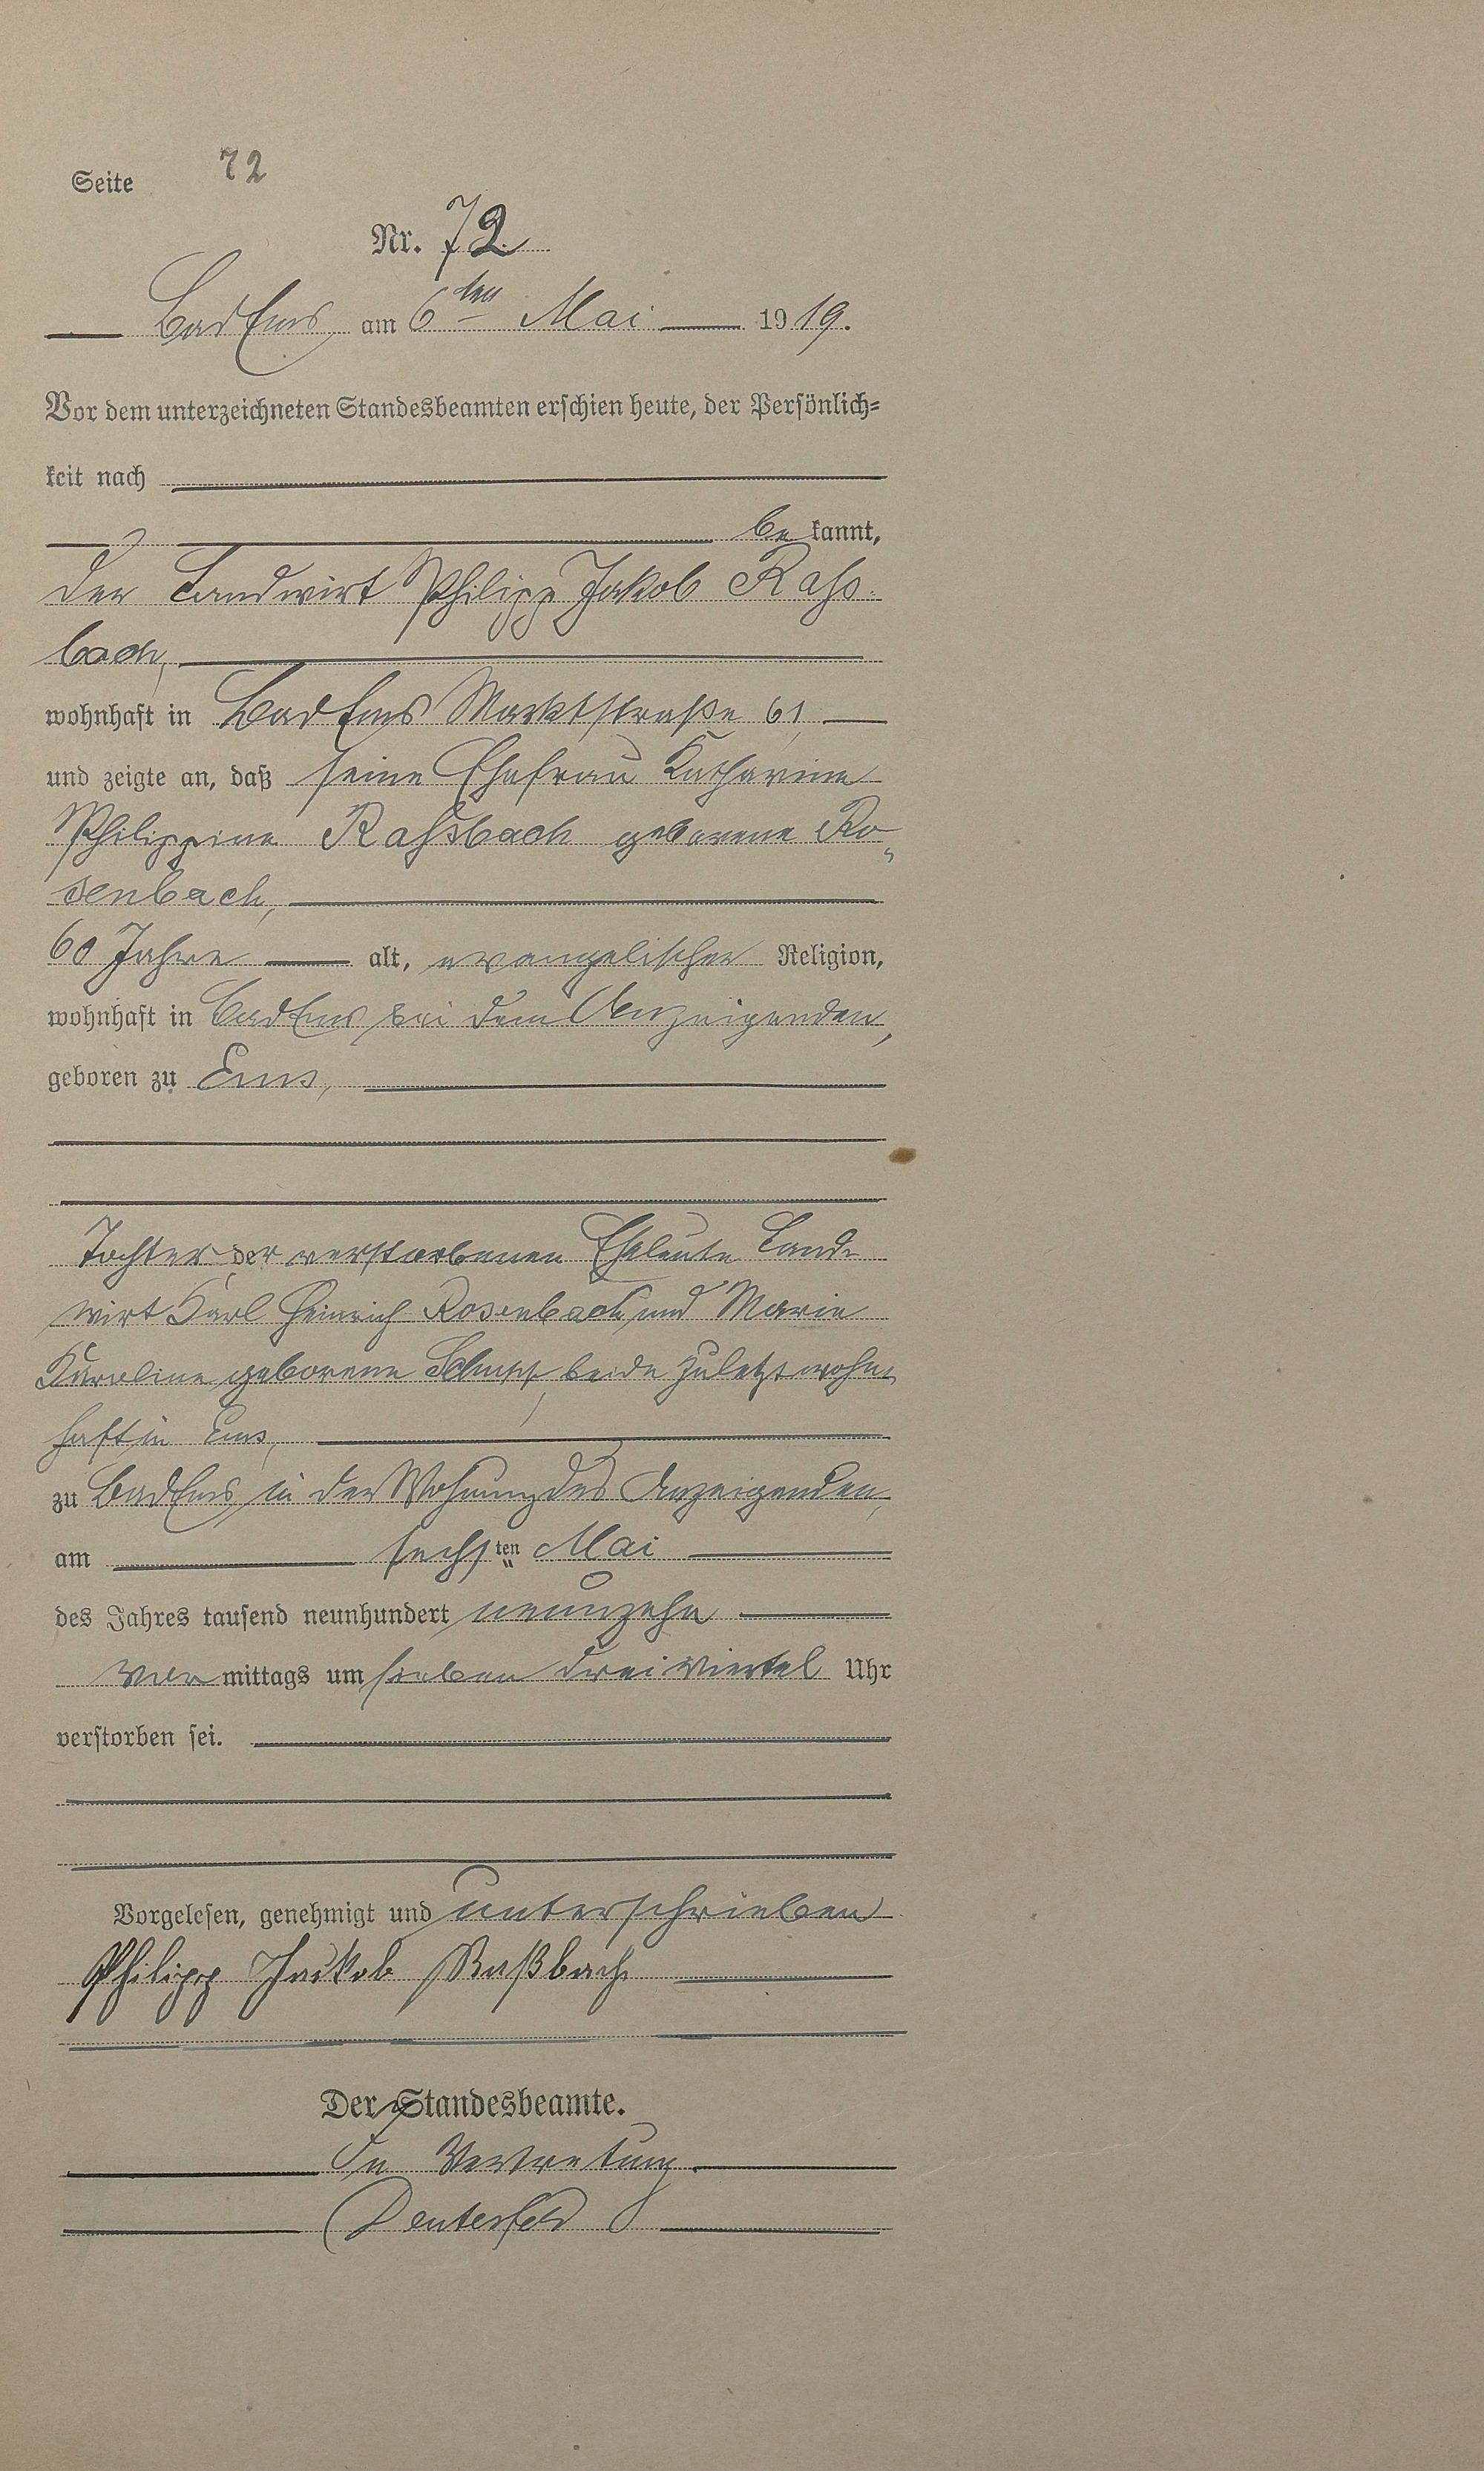 Seite 72
Nr. 72
Bad Ems, am 6ten Mai 1919.
Vor dem unterzeichneten Standesbeamten erschien heute, der Persönlich-
keit nach
bekannt,
der Landwirt Philipp Jakob Raßs-
bach,
wohnhaft in Bad Ems Marktstraße 61,
und zeigte an, daß seine Ehefrau Katharine
Philippine Rassbach geborene Ro-
senbach,
60 Jahre alt, evangelischer Religion,
wohnhaft in Bad Ems bei dem Anzeigenden,
geboren zu Ems,
Tochter der verstorbenen Eheleute Land-
wirt Karl Heinrich Rosenbach und Marie
Karoline geborene beide zuletzt wohn-
haft in Ems,
zu Bad Ems, in der Wohnung des Anzeigenden,
am sechsten Mai
des Jahres tausend neunhundert neunzehn
vormittags um sieben drei viertel Uhr
verstorben sei.
Vorgelesen, genehmigt und unterschrieben
Philipp Jackob Raßbach
Der Standesbeamte.
In Vertretung